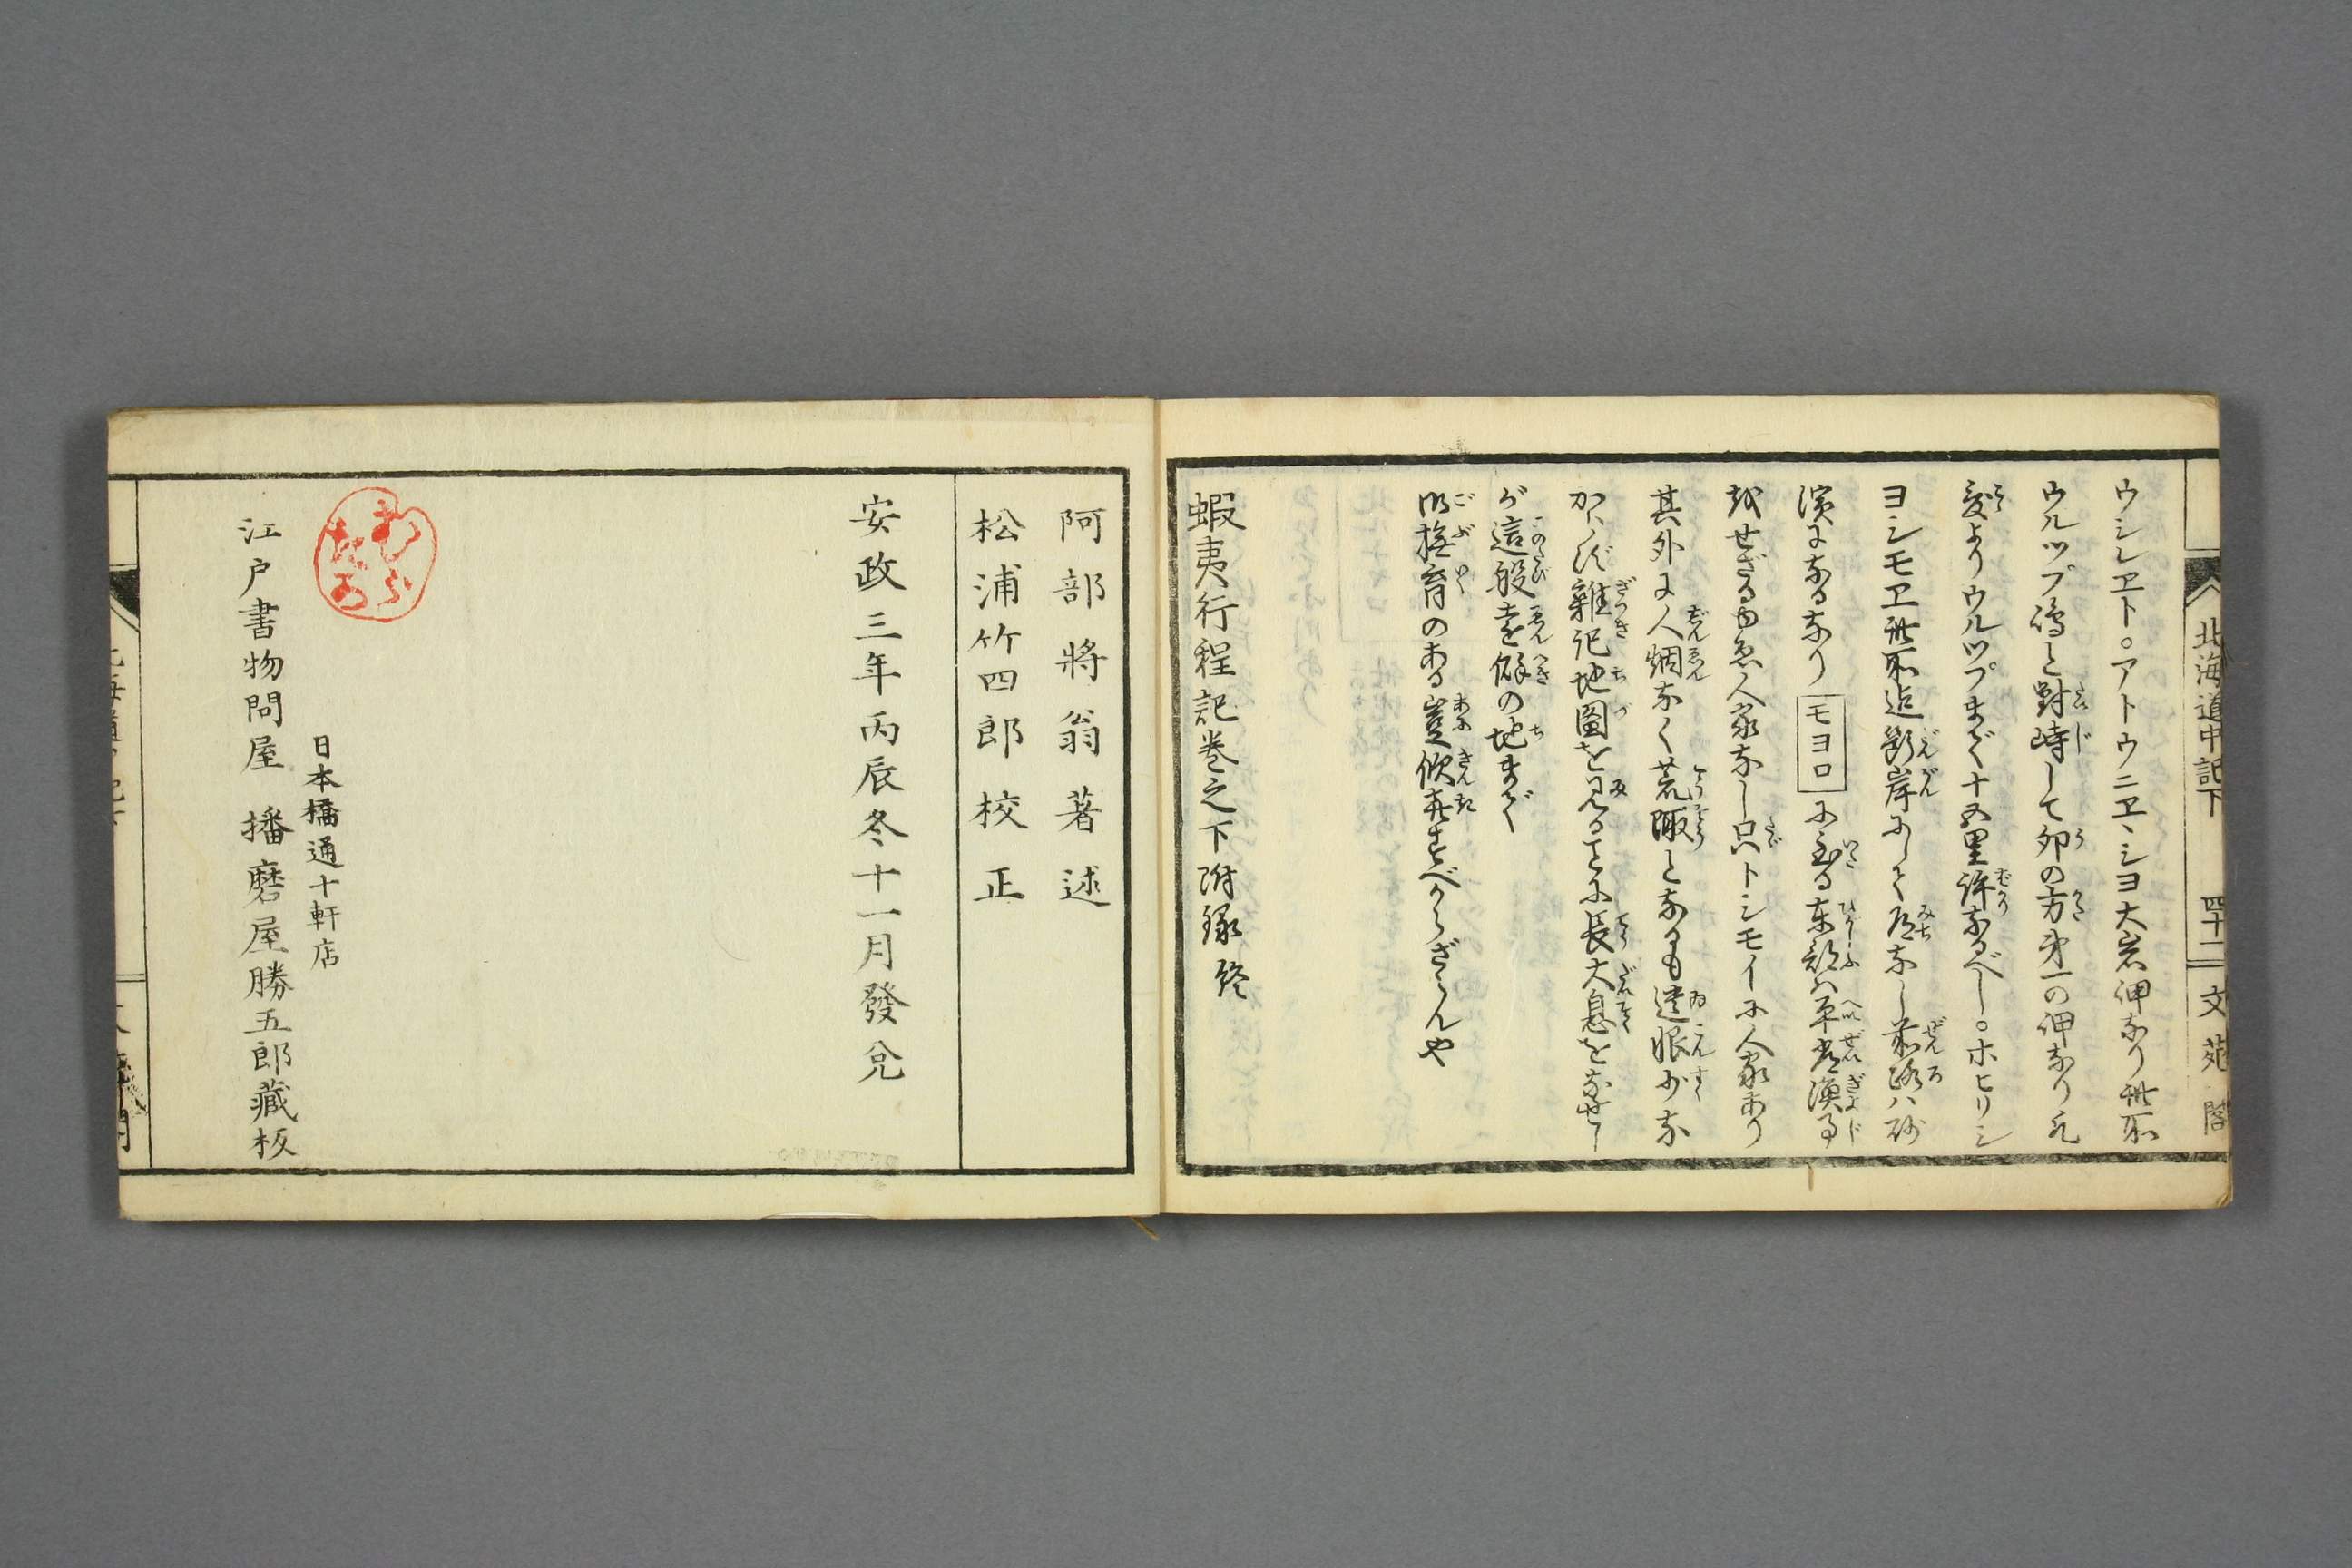 北海道中記下 四十二 文苑閣
ウシレヱト。アトウニヱ、シヨ大岩岬なり此所
ウルツプ嶋と對峙して卯の方第一の岬なり凡
爰よりウルツプまで十五里許なるべし。ホヒリシ
ヨシモヱ此所迄断岸にして道なし前路ハ砂
濱になるなり モヨロ に至る東部ハ平常漁事
越せざるゆゑ人家なし只トシモイに人家あり
其外に人烟なく荒陬となるも遺恨少な
からず雑記地圖を見ることに長大息をなせし
が這般遠僻の地まで
御撫育のある豈欣喜すべからざらんや
蝦夷行程記巻之下附録 終
阿部將翁著述
松浦竹四郎校正
安政三年丙辰冬十一月發兌
日本橋通十軒店
江戸書物問屋 播磨屋勝五郎藏板